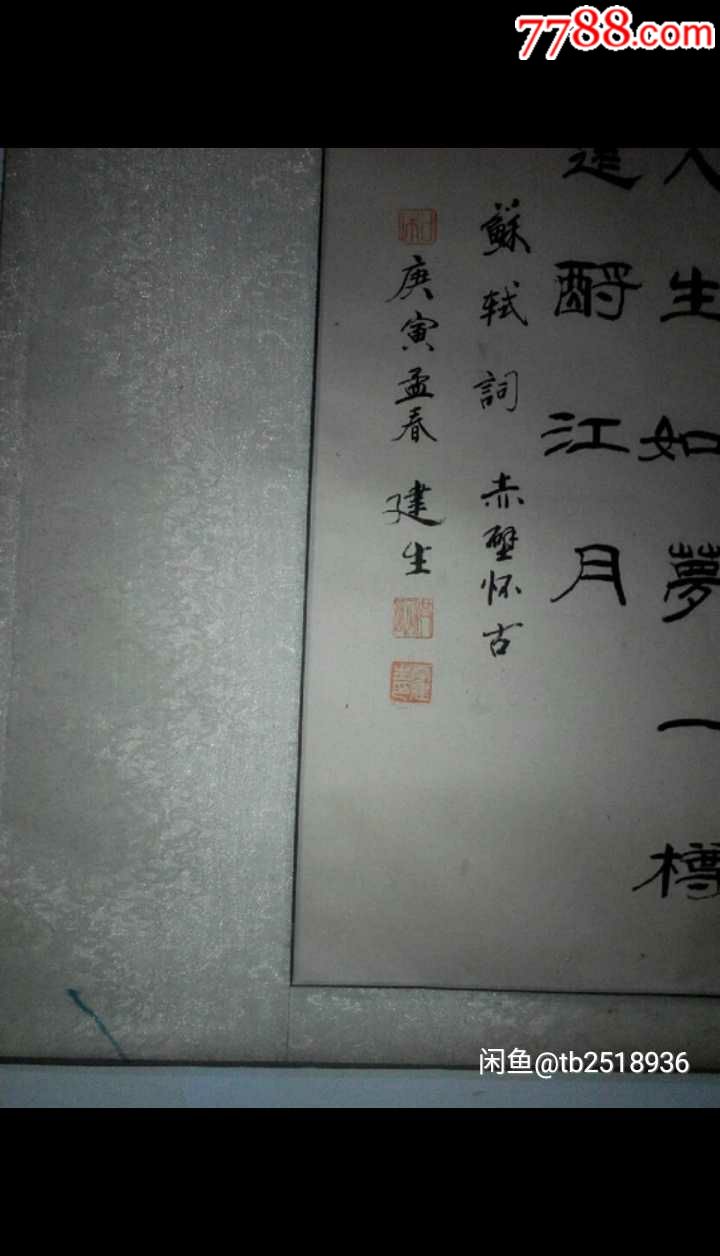 7788.com
人生如夢一樽
還酹江月
蘇軾詞 赤壁怀古
庚寅孟春 建生
闲鱼@tb2518936